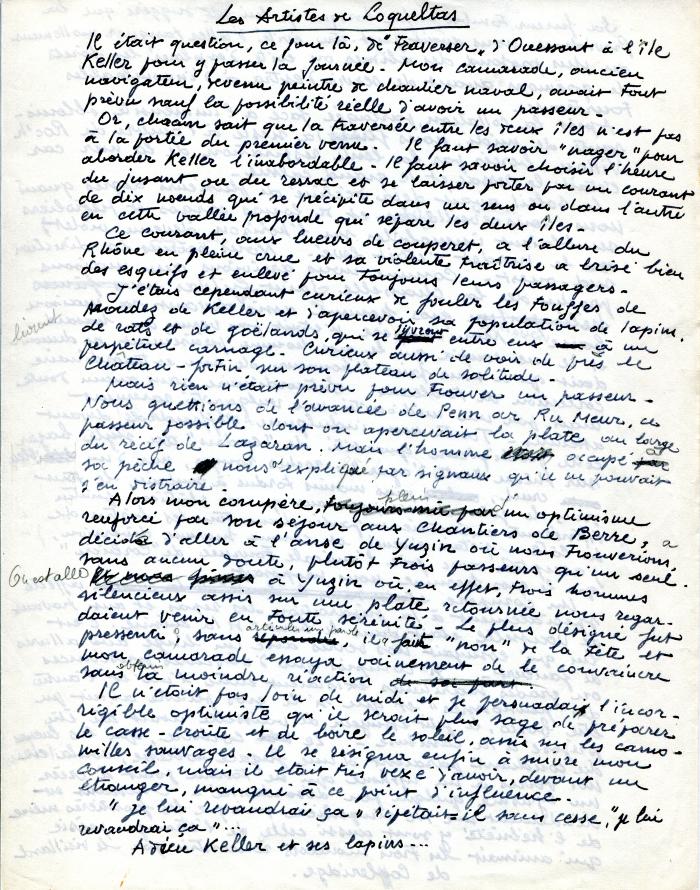 Les Artistes de Loqueltas
Il était question, ce jour là, de "traverser" d'Ouessant à l'île
Keller pour y passer la journée. Mon camarade, ancien
navigateur, devenu peintre de chantier naval, avait tout
prévu sauf la possibilité réelle d'avoir un passeur.
Or, chacun sait que la traversée entre les deux îles n'est pas
à la portée du premier venu. Il faut savoir "nager" pour
aborder Keller l'inabordable. Il faut savoir choisir l'heure
du jusant ou du ressac et se laisser porter par un courant
de dix noeuds qui se précipite dans un sens ou dans l'autre
en cette vallée profonde qui sépare les deux îles.
Ce courant, aux lueurs de couperet, a l'allure du
Rhône en pleine crue et sa violente traîtrise a brisé bien
des esquifs et enlevé pour toujours leurs passagers.
J'étais cependant curieux de fouler les touffes de
de Keller et d'apercevoir sa population de lapins,
livrent
de rats et de goélands, qui se entre eux à un
perpétuel carnage. Curieux aussi de voir de près le
Château-fortin sur son plateau de solitude.
Mais rien n'était prévu pour trouver un passeur.
Nous guettions de l'avancée de Penn ar Ru Meur, ce
passeur possible dont on apercevait la plate au large
du récif de Lagaran. Mais l'homme occupé à
sa pêche nous expliqua par signaux qu'il ne pouvait
s'en distraire.
Alors mon compère, plein d'un optimisme
renforcé par son séjour aux chantiers de Berre, a
décidé d'aller à l'anse de Yuzin où nous trouverions,
sans aucun doute, plutôt trois passeurs qu'un seul.
On est allé à Yuzin où, en effet, trois hommes
silencieux assis sur une plate retournée nous regar-
daient venir en toute sérénité. Le plus désigné fut
pressenti; sans articuler une parole, il a fait "non" de la tête et
mon camarade essaya vainement de le convaincre
sans obtenir la moindre réaction
Il n'était pas loin de midi et je persuadai l'incor-
rigible optimiste qu'il serait plus sage de préparer
le casse-croûte et de boire le soleil, assis sur les camo-
milles sauvages. Il se résigna enfin à suivre mon
conseil, mais il était très vexé d'avoir, devant un
étranger, manqué à ce point d'influence.
"je lui revaudrai ça" répétait-il sans cesse, "je lui
revaudrai ça"...
Adieu Keller et ses lapins...